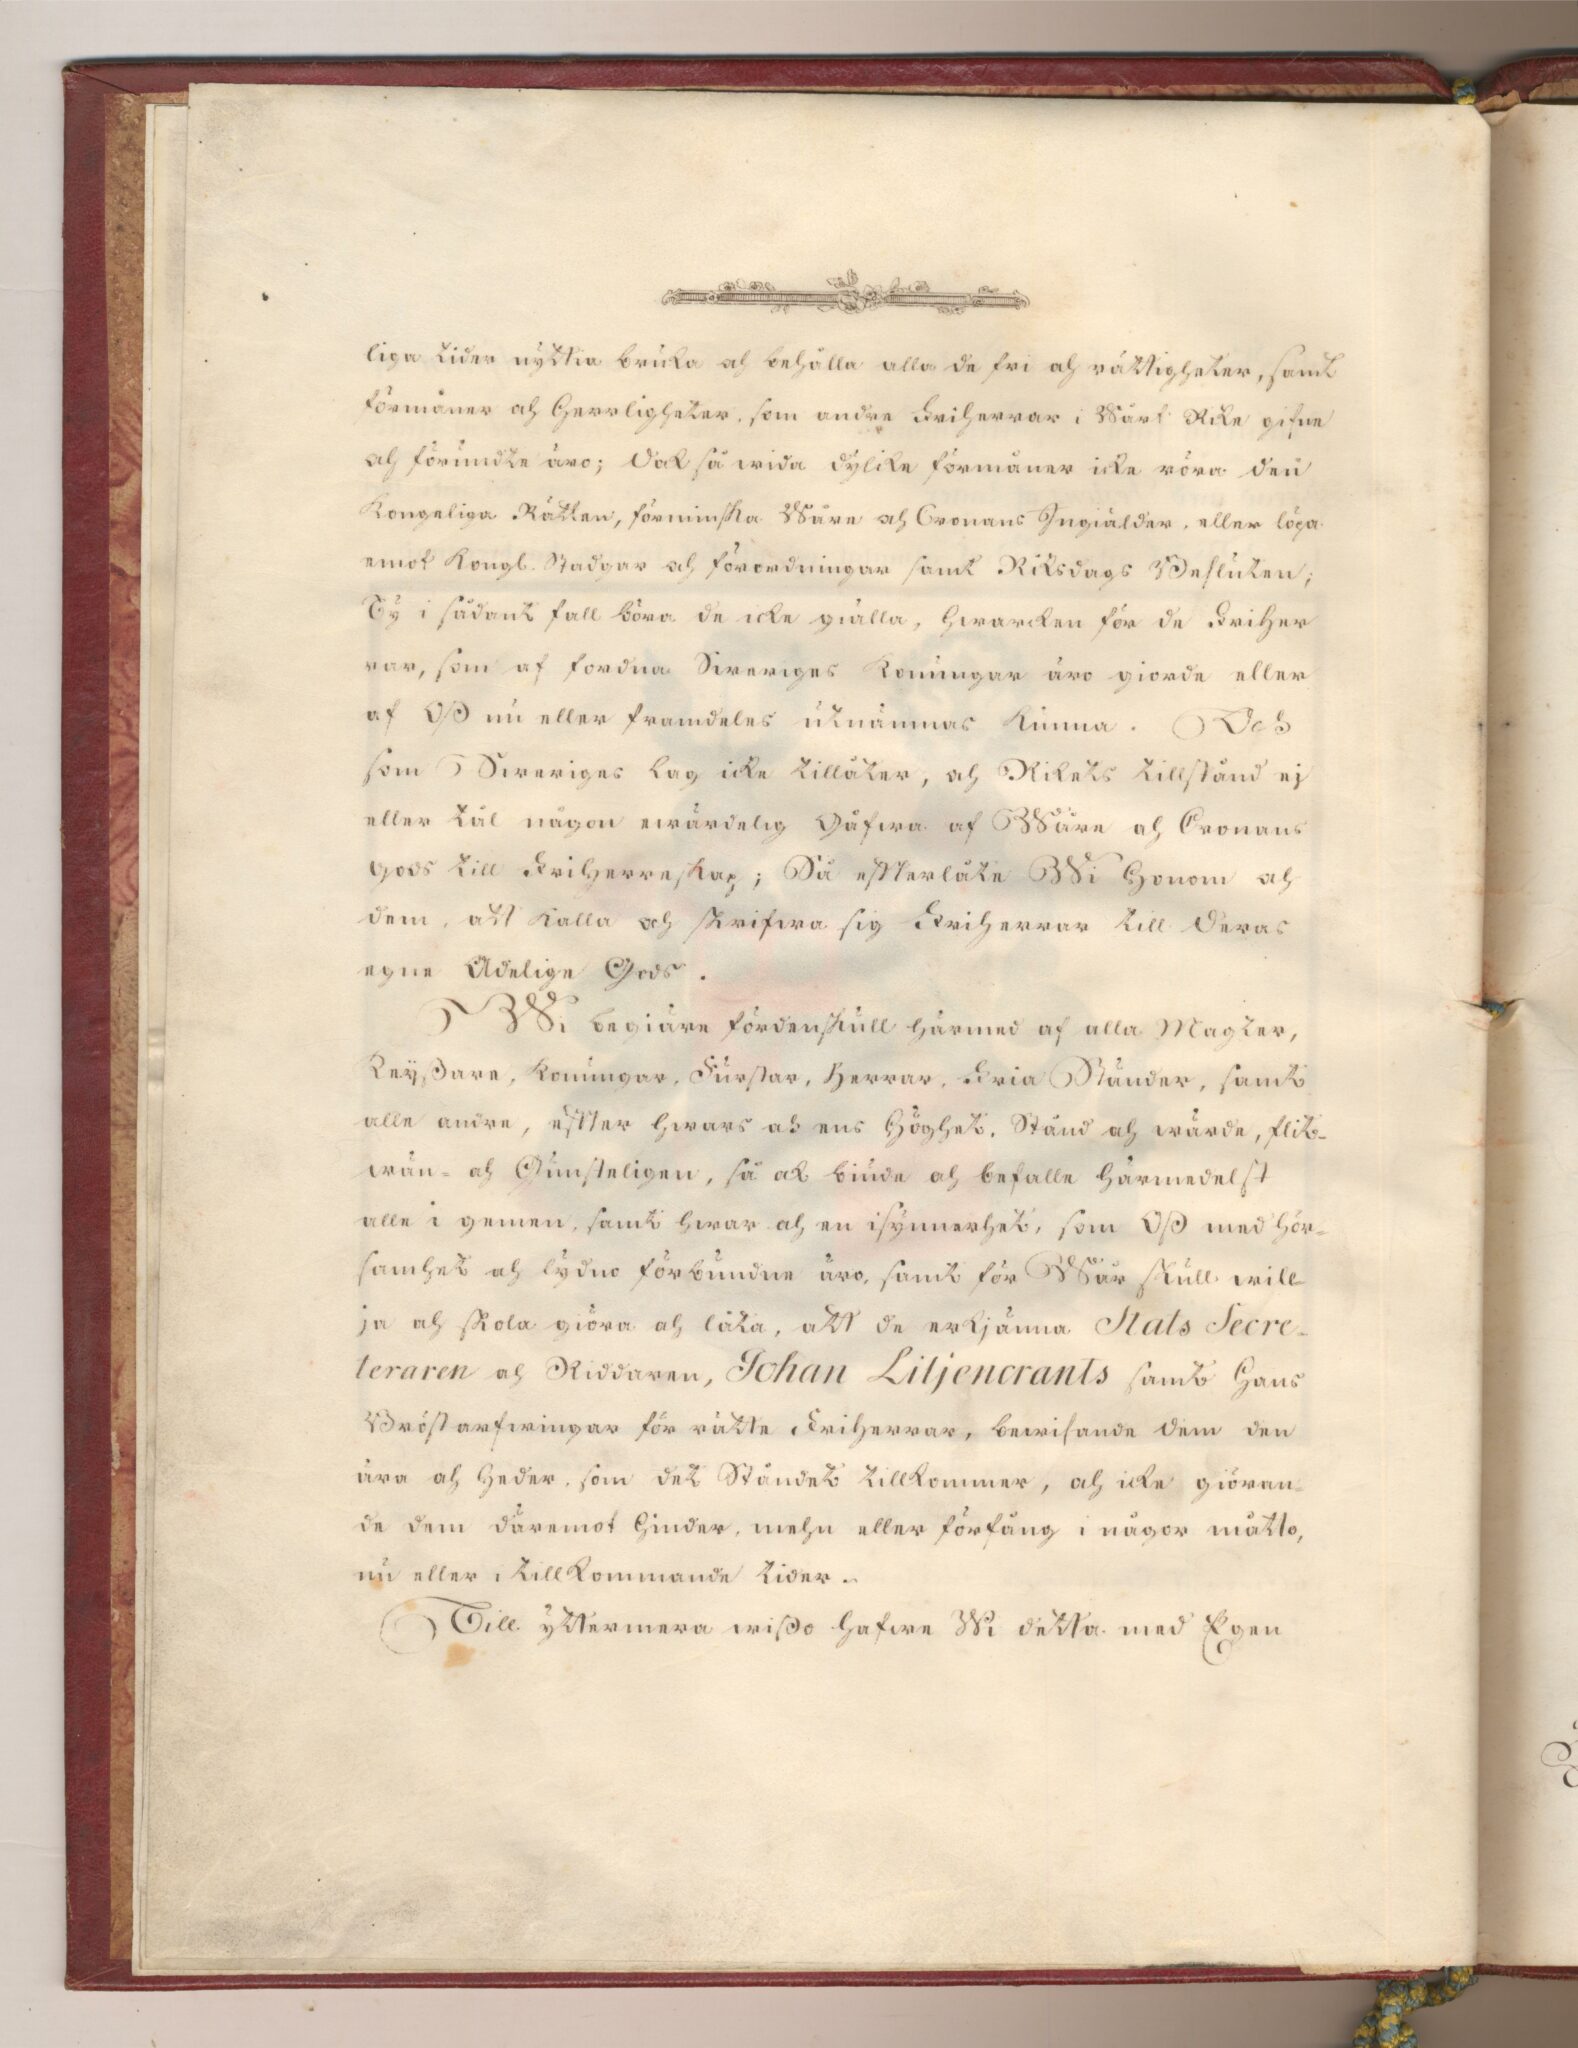 liga tider nyttia bruka och behålla alla de fri och rättigheter, samt
förmåner och Herrligheter, som andre Friherrar i Wårt Rike gifne
och förundte äro; Dock så wida dylike förmåner icke röra den
Kongeliga Rätten, förminska Wåre och Cronans Ingiälder, eller löpa
emot Kongl. Stadgar och förordningar samt Riksdags Besluten;
Ty i sådant fall böra de icke giälla, hwarcken för de Friher
rar, som af fordna Sweriges Konungar äro giorde eller
af Oß nu eller framdeles utnämnas kunna. Och
som Sweriges Lag icke tillåter, och Rikets tillstånd ej
eller tål någon ewärdelig Gåfwa af Wåre och Cronans
gods till Friherreskap; Så effterlåte Wi Honom och
dem, att kalla och skrifwa sig Friherrar till Deras
egne Adelige Gods.
Wi begiäre fördenskull härmed af alla Magter,
Keyßare, Konungar, Furstar, Herrar, Fria Ständer, samt
alle andre, effter hwars och ens Höghet, Stånd och wärde, flit-
wän- och Gunsteligen, så ock biude och befalle härmedelst
alle i gemen, samt hwar och en isynnerhet, som Oß med hör-
samhet och lydno förbundne äro, samt för Wår skull will
ja och skola giöra och låta, att de erkjänna Stats Secre-
teraren och Riddaren, Johan Liljencrants samt Hans
Bröstarfwingar för rätte Friherrar, bewisande dem den
ära och Heder, som det Ståndet tillkommer, och icke giöran-
de dem däremot Hinder, mehn eller förfång i någor måtto,
nu eller i tillkommande tider.
Till yttermera wißo hafwe Wi detta med Egen